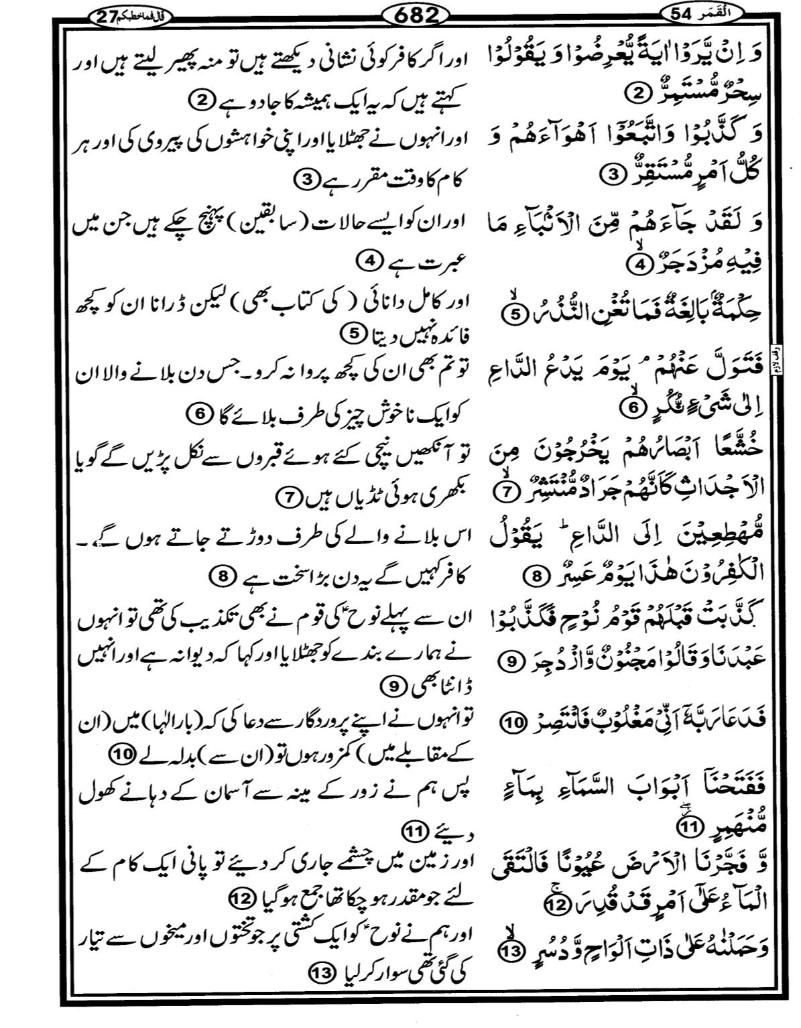 اَلْقَمَر 54
682
قال فما خطبکم 27
وَ اِنْ یَّرَوْا اٰیَةً یُّعْرِضُوْا وَ یَقُوْلُوْا
سِحْرٌ مُّسْتَمِرٌّ ②
اور اگر کافر کوئی نشانی دیکھتے ہیں تو منہ پھیر لیتے ہیں اور
کہتے ہیں کہ یہ ایک ہمیشہ کا جادو ہے ②
وَ كَذَّبُوْا وَاتَّبَعُوْۤا اَهْوَآءَهُمْ وَ
كُلُّ اَمْرٍ مُّسْتَقِرٌّ ③
اور انہوں نے جھٹلایا اور اپنی خواہشوں کی پیروی کی اور ہر
کام کا وقت مقرر ہے ③
وَ لَقَدْ جَآءَهُمْ مِّنَ الْاَنْۢبَآءِ مَا
فِیْهِ مُزْدَجَرٌ ④ۙ
اور ان کو ایسے حالات (سابقین) پہنچ چکے ہیں جن میں
عبرت ہے ④
حِكْمَةٌۢ بَالِغَةٌ فَمَا تُغْنِ النُّذُرُ ⑤ۙ
اور کامل دانائی (کی کتاب بھی) لیکن ڈرانا ان کو کچھ
فائدہ نہیں دیتا ⑤
فَتَوَلَّ عَنْهُمْ ۘ یَوْمَ یَدْعُ الدَّاعِ
اِلٰی شَیْءٍ نُّكُرٍ ⑥ۙ
وقف لازم
تو تم بھی ان کی کچھ پروا نہ کرو۔ جس دن بلانے والا ان
کو ایک ناخوش چیز کی طرف بلائے گا ⑥
خُشَّعًا اَبْصَارُهُمْ یَخْرُجُوْنَ مِنَ
الْاَجْدَاثِ كَاَنَّهُمْ جَرَادٌ مُّنْتَشِرٌ ⑦ۙ
تو آنکھیں نیچی کئے ہوئے قبروں سے نکل پڑیں گے گویا
بکھری ہوئی ٹڈیاں ہیں ⑦
مُّهْطِعِیْنَ اِلَی الدَّاعِ ؕ یَقُوْلُ
الْكٰفِرُوْنَ هٰذَا یَوْمٌ عَسِرٌ ⑧
اس بلانے والے کی طرف دوڑتے جاتے ہوں گے۔
کافر کہیں گے یہ دن بڑا سخت ہے ⑧
كَذَّبَتْ قَبْلَهُمْ قَوْمُ نُوْحٍ فَكَذَّبُوْا
عَبْدَنَا وَ قَالُوْا مَجْنُوْنٌ وَّازْدُجِرَ ⑨
ان سے پہلے نوحؑ کی قوم نے بھی تکذیب کی تھی تو انہوں
نے ہمارے بندے کو جھٹلایا اور کہا کہ دیوانہ ہے اور انہیں
ڈانٹا بھی ⑨
فَدَعَا رَبَّهٗۤ اَنِّیْ مَغْلُوْبٌ فَانْتَصِرْ ⑩
تو انہوں نے اپنے پروردگار سے دعا کی کہ (بارالٰہا) میں (ان
کے مقابلے میں) کمزور ہوں تو (ان سے) بدلہ لے ⑩
فَفَتَحْنَاۤ اَبْوَابَ السَّمَآءِ بِمَآءٍ
مُّنْهَمِرٍ ⑪ۖ
پس ہم نے زور کے مینہ سے آسمان کے دہانے کھول
دیئے ⑪
وَّ فَجَّرْنَا الْاَرْضَ عُیُوْنًا فَالْتَقَی
الْمَآءُ عَلٰۤی اَمْرٍ قَدْ قُدِرَ ⑫ۚ
اور زمین میں چشمے جاری کر دیئے تو پانی ایک کام کے
لئے جو مقدر ہو چکا تھا جمع ہوگیا ⑫
وَ حَمَلْنٰهُ عَلٰی ذَاتِ اَلْوَاحٍ وَّ دُسُرٍ ⑬ۙ
اور ہم نے نوحؑ کو ایک کشتی پر جو تختوں اور میخوں سے تیار
کی گئی تھی سوار کر لیا ⑬